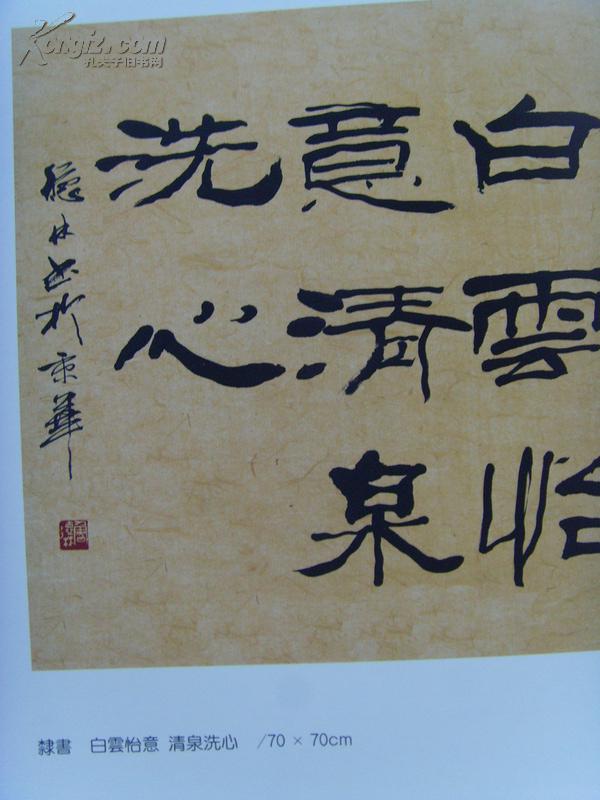 白雲怡
意清泉
洗心
林书於京華
隸書 白雲怡意 清泉洗心 /70 × 70cm
Kongfz.com
孔夫子旧书网